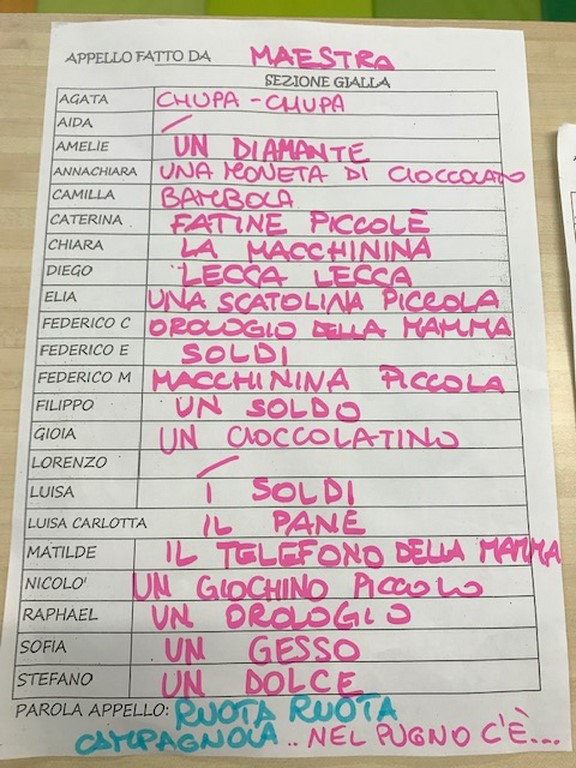 APPELLO FATTO DA MAESTRA
SEZIONE GIALLA
AGATA CHUPA-CHUPA
AIDA /
AMELIE UN DIAMANTE
ANNACHIARA UNA MONETA DI CIOCCOLATO
CAMILLA BAMBOLA
CATERINA FATINE PICCOLE
CHIARA LA MACCHININA
DIEGO LECCA LECCA
ELIA UNA SCATOLINA PICCOLA
FEDERICO C OROLOGIO DELLA MAMMA
FEDERICO E SOLDI
FEDERICO M MACCHININA PICCOLA
FILIPPO UN SOLDO
GIOIA UN CIOCCOLATINO
LORENZO /
LUISA I SOLDI
LUISA CARLOTTA IL PANE
MATILDE IL TELEFONO DELLA MAMMA
NICOLO' UN GIOCHINO PICCOLO
RAPHAEL UN OROLOGIO
SOFIA UN GESSO
STEFANO UN DOLCE
PAROLA APPELLO: RUOTA RUOTA
CAMPAGNOLA.. NEL PUGNO C'È...